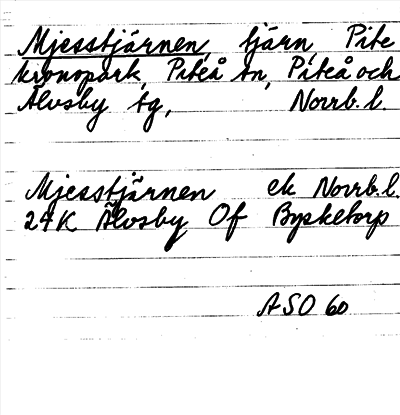 Mjesstjärnen, tjärn, Pite
kronopark, Piteå tn, Piteå och
Älvsby tg, Norrb. l.
Mjesstjärnen ek Norrb. l.
24K Älvsby Of Bysketorp
ASO 60